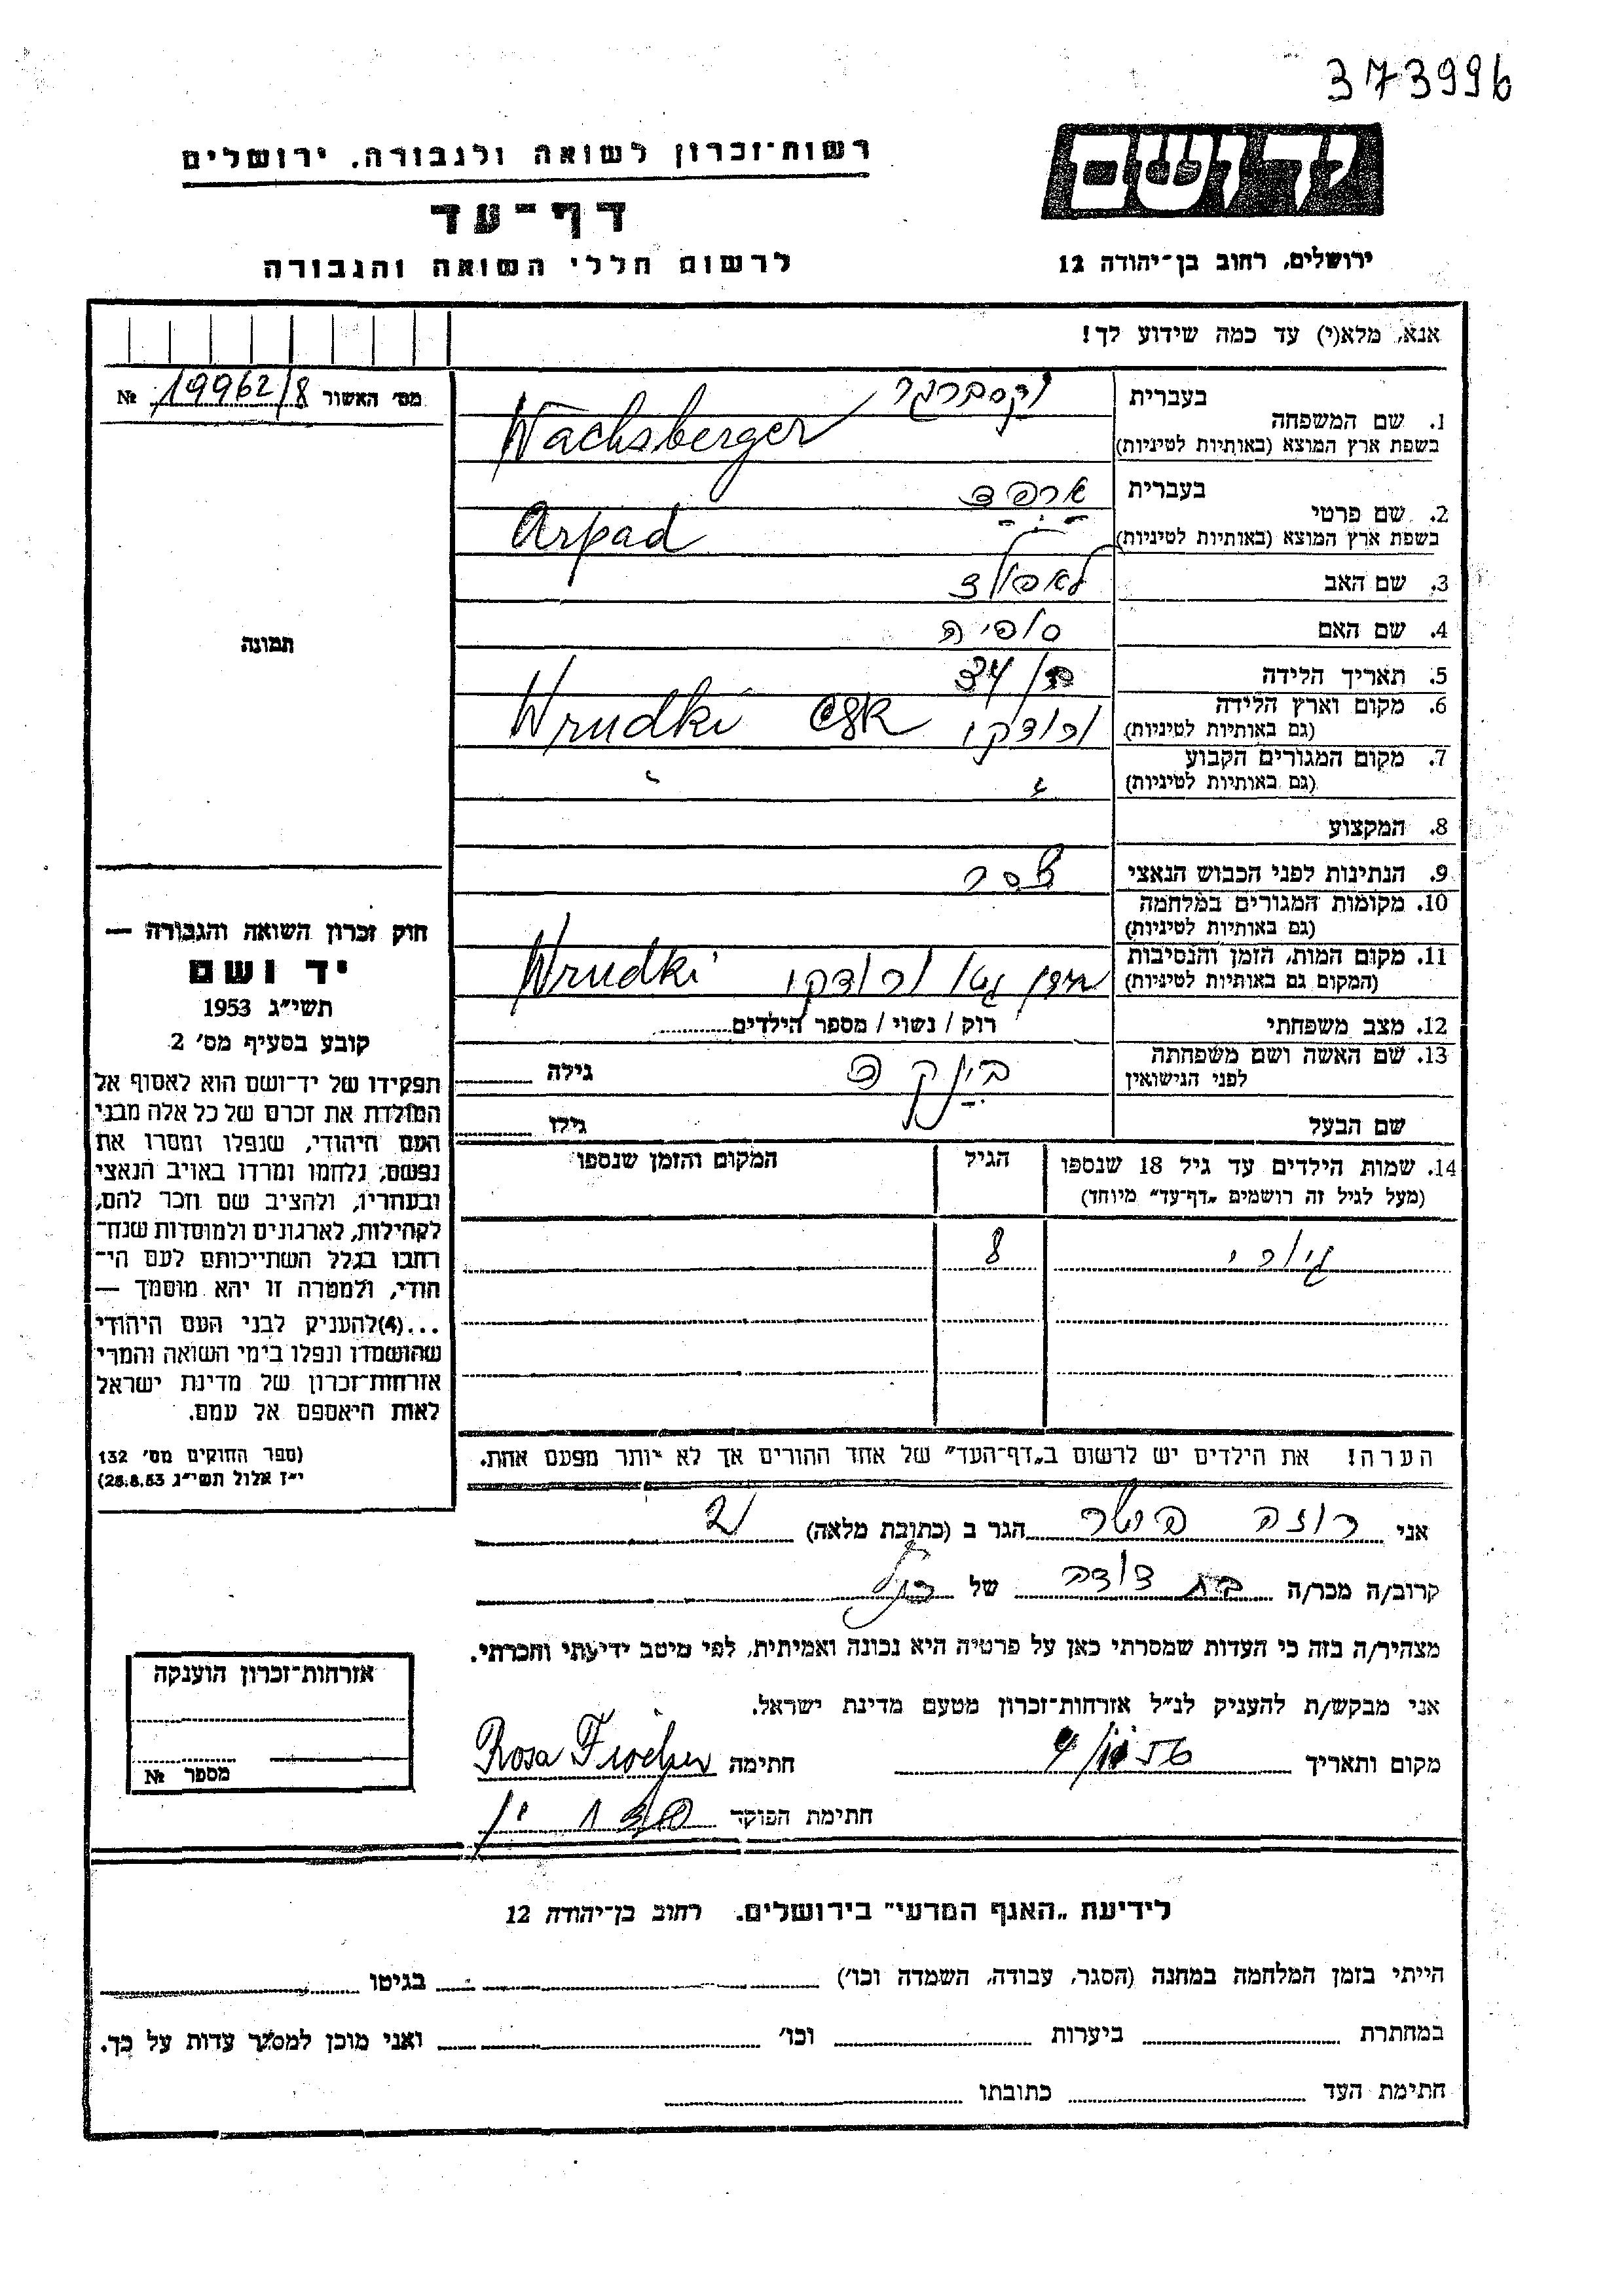 373996
רשות־זכרון לשואה ולגבורה. ירושלים
יד ושם
דף־עד
לרשום חללי השואה והגבורה
ירושלים, רחוב בן־יהודה 12
אנא, מלא(י) עד כמה שידוע לך!
מס׳ האשור 19962/8 №
1. שם המשפחה
בעברית וקסברגר
בשפת ארץ המוצא (באותיות לטיניות) Wachsberger
2. שם פרטי
בעברית ארפד
בשפת ארץ המוצא (באותיות לטיניות) Arpad
3. שם האב
4. שם האם סופיה
תמונה
5. תאריך הלידה
6. מקום וארץ הלידה
(גם באותיות לטיניות) Wrudki
7. מקום המגורים הקבוע
(גם באותיות לטיניות)
8. המקצוע
9. הנתינות לפני הכבוש הנאצי
10. מקומות המגורים במלחמה
(גם באותיות לטיניות)
11. מקום המות, הזמן והנסיבות
(המקום גם באותיות לטיניות) Wrudki
12. מצב משפחתי רוק / נשוי / מספר הילדים
13. שם האשה ושם משפחתה
לפני הנישואין גילה
שם הבעל גילו
14. שמות הילדים עד גיל 18 שנספו
(מעל לגיל זה רושמים „דף־עד״ מיוחד)
הגיל
המקום והזמן שנספו
8
חוק זכרון השואה והגבורה —
יד ושם
תשי״ג 1953
קובע בסעיף מס׳ 2
תפקידו של יד־ושם הוא לאסוף אל
המולדת את זכרם של כל אלה מבני
העם היהודי, שנפלו ומסרו את
נפשם, נלחמו ומרדו באויב הנאצי
ובעוזריו, ולהציב שם וזכר להם,
לקהילות, לארגונים ולמוסדות שנח־
רבו בגלל השתייכותם לעם הי־
הודי, ולמטרה זו יהא מוסמך —
...(4)להעניק לבני העם היהודי
שהושמדו ונפלו בימי השואה והמרי
אזרחות־זכרון של מדינת ישראל
לאות היאספם אל עמם.
(ספר החוקים מס׳ 132
י״ז אלול תשי״ג 28.8.53)
הערה! את הילדים יש לרשום ב„דף־העד״ של אחד ההורים אך לא יותר מפעם אחת.
אני רוזה הגר ב (כתובת מלאה)
קרוב/ה מכר/ה בת דודה של
מצהיר/ה בזה כי העדות שמסרתי כאן על פרטיה היא נכונה ואמיתית, לפי מיטב ידיעתי והכרתי.
אני מבקש/ת להעניק לנ״ל אזרחות־זכרון מטעם מדינת ישראל.
מקום ותאריך חתימה Rosa
חתימת הפוקד
אזרחות־זכרון הוענקה
מספר №
לידיעת „האגף המדעי״ בירושלים. רחוב בן־יהודה 12
הייתי בזמן המלחמה במחנה (הסגר, עבודה, השמדה וכו׳) בגיטו
במחתרת ביערות וכו׳ ואני מוכן למסור עדות על כך.
חתימת העד כתובתו